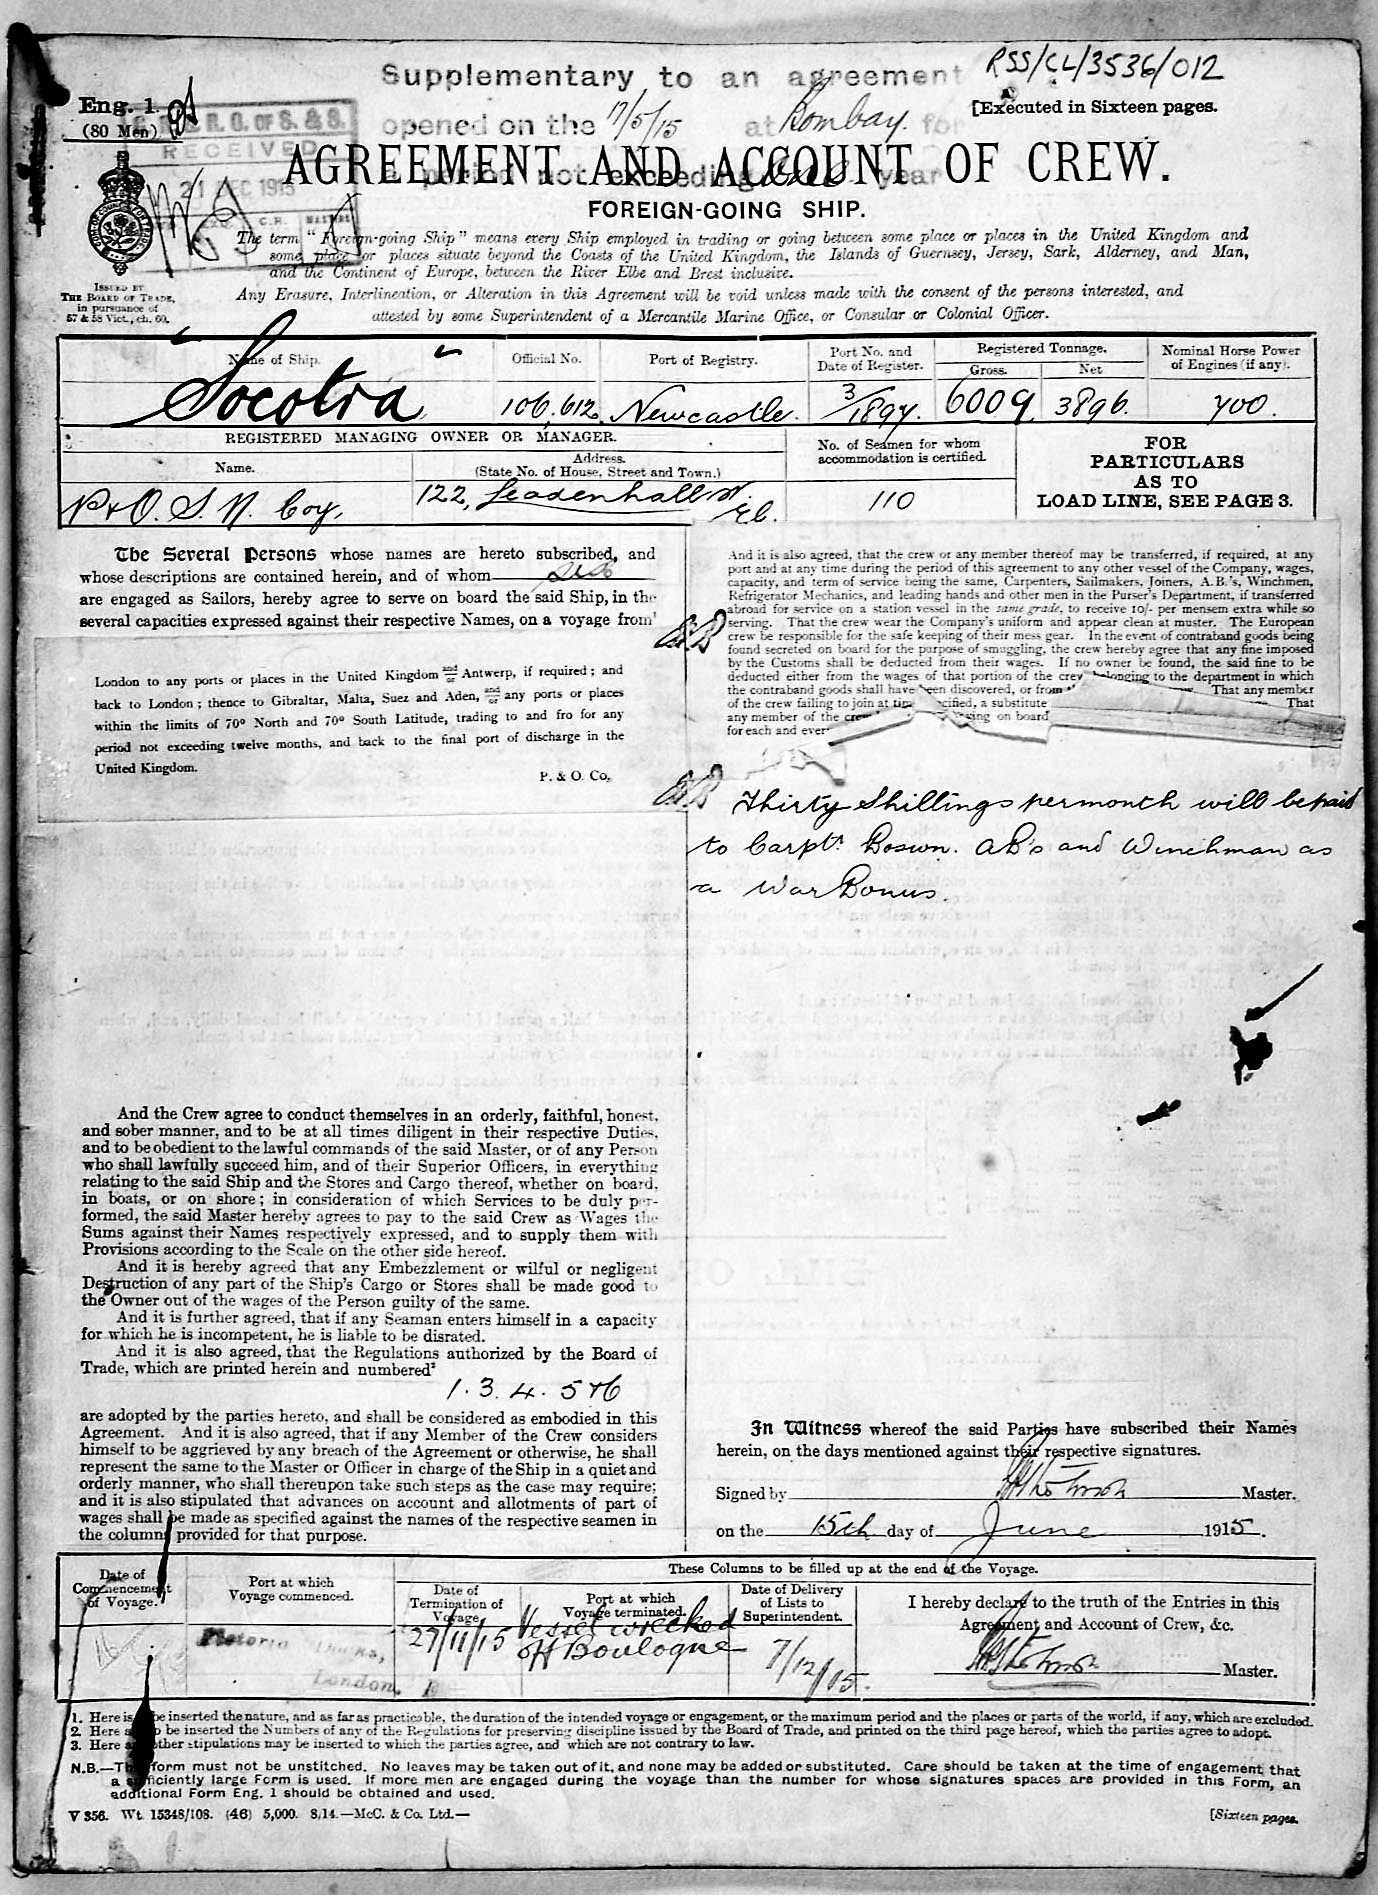 Supplementary to an agreement
opened on the 17/5/15 at Bombay. for
a period not exceeding one year
RSS/CL/3536/012
Eng. 1.
(80 Men)
R. O. OF S. & S.
RECEIVED
21 DEC 1915
[Executed in Sixteen pages.
AGREEMENT AND ACCOUNT OF CREW.
FOREIGN-GOING SHIP.
ISSUED BY
THE BOARD OF TRADE,
in pursuance of
57 & 58 Vict., ch. 60.
The term "Foreign-going Ship" means every Ship employed in trading or going between some place or places in the United Kingdom and
some place or places situate beyond the Coasts of the United Kingdom, the Islands of Guernsey, Jersey, Sark, Alderney, and Man,
and the Continent of Europe, between the River Elbe and Brest inclusive.
Any Erasure, Interlineation, or Alteration in this Agreement will be void unless made with the consent of the persons interested, and
attested by some Superintendent of a Mercantile Marine Office, or Consular or Colonial Officer.
Name of Ship. Official No. Port of Registry. Port No. and Date of Register. Registered Tonnage. Gross. Net Nominal Horse Power of Engines (if any).
"Socotra" 106,612. Newcastle. 3/1897. 6009 3896. 700.
REGISTERED MANAGING OWNER OR MANAGER.
Name. Address. (State No. of House, Street and Town.)
No. of Seamen for whom accommodation is certified.
P & O. S. N. Coy, 122, Leadenhall St. E.C. 110
FOR
PARTICULARS
AS TO
LOAD LINE, SEE PAGE 3.
The Several Persons whose names are hereto subscribed, and
whose descriptions are contained herein, and of whom six
are engaged as Sailors, hereby agree to serve on board the said Ship, in the
several capacities expressed against their respective Names, on a voyage from¹
London to any ports or places in the United Kingdom and/or Antwerp, if required; and
back to London; thence to Gibraltar, Malta, Suez and Aden, and/or any ports or places
within the limits of 70° North and 70° South Latitude, trading to and fro for any
period not exceeding twelve months, and back to the final port of discharge in the
United Kingdom.
P. & O. Co.
And the Crew agree to conduct themselves in an orderly, faithful, honest,
and sober manner, and to be at all times diligent in their respective Duties,
and to be obedient to the lawful commands of the said Master, or of any Person
who shall lawfully succeed him, and of their Superior Officers, in everything
relating to the said Ship and the Stores and Cargo thereof, whether on board,
in boats, or on shore; in consideration of which Services to be duly per-
formed, the said Master hereby agrees to pay to the said Crew as Wages the
Sums against their Names respectively expressed, and to supply them with
Provisions according to the Scale on the other side hereof.
And it is hereby agreed that any Embezzlement or wilful or negligent
Destruction of any part of the Ship's Cargo or Stores shall be made good to
the Owner out of the wages of the Person guilty of the same.
And it is further agreed, that if any Seaman enters himself in a capacity
for which he is incompetent, he is liable to be disrated.
And it is also agreed, that the Regulations authorized by the Board of
Trade, which are printed herein and numbered²
1. 3. 4. 5 & 6
are adopted by the parties hereto, and shall be considered as embodied in this
Agreement. And it is also agreed, that if any Member of the Crew considers
himself to be aggrieved by any breach of the Agreement or otherwise, he shall
represent the same to the Master or Officer in charge of the Ship in a quiet and
orderly manner, who shall thereupon take such steps as the case may require;
and it is also stipulated that advances on account and allotments of part of
wages shall be made as specified against the names of the respective seamen in
the columns provided for that purpose.
And it is also agreed, that the crew or any member thereof may be transferred, if required, at any
port and at any time during the period of this agreement to any other vessel of the Company, wages,
capacity, and term of service being the same, Carpenters, Sailmakers, Joiners, A.B.'s, Winchmen,
Refrigerator Mechanics, and leading hands and other men in the Purser's Department, if transferred
abroad for service on a station vessel in the same grade, to receive 10/- per mensem extra while so
serving. That the crew wear the Company's uniform and appear clean at muster. The European
crew be responsible for the safe keeping of their mess gear. In the event of contraband goods being
found secreted on board for the purpose of smuggling, the crew hereby agree that any fine imposed
by the Customs shall be deducted from their wages. If no owner be found, the said fine to be
deducted either from the wages of that portion of the crew belonging to the department in which
the contraband goods shall have been discovered, or from That any member
of the crew failing to join at time specified, a substitute That
any member of the crew on board
for each and every
Thirty Shillings per month will be paid
to Carptr. Boswn. AB's and Winchman as
a War Bonus.
In Witness whereof the said Parties have subscribed their Names
herein, on the days mentioned against their respective signatures.
Signed by Master.
on the 15th day of June 1915.
These Columns to be filled up at the end of the Voyage.
Date of Commencement of Voyage. Port at which Voyage commenced. Date of Termination of Voyage. Port at which Voyage terminated. Date of Delivery of Lists to Superintendent.
I hereby declare to the truth of the Entries in this
Agreement and Account of Crew, &c.
Victoria Docks, London, E 27/11/15 Vessel wrecked off Boulogne 7/12/15.
Master.
1. Here is to be inserted the nature, and as far as practicable, the duration of the intended voyage or engagement, or the maximum period and the places or parts of the world, if any, which are excluded.
2. Here are to be inserted the Numbers of any of the Regulations for preserving discipline issued by the Board of Trade, and printed on the third page hereof, which the parties agree to adopt.
3. Here any other stipulations may be inserted to which the parties agree, and which are not contrary to law.
N.B.—This form must not be unstitched. No leaves may be taken out of it, and none may be added or substituted. Care should be taken at the time of engagement that
a sufficiently large Form is used. If more men are engaged during the voyage than the number for whose signatures spaces are provided in this Form, an
additional Form Eng. 1 should be obtained and used.
V 356. Wt. 15348/108. (46) 5,000. 8/14.—McC. & Co. Ltd.—
[Sixteen pages.